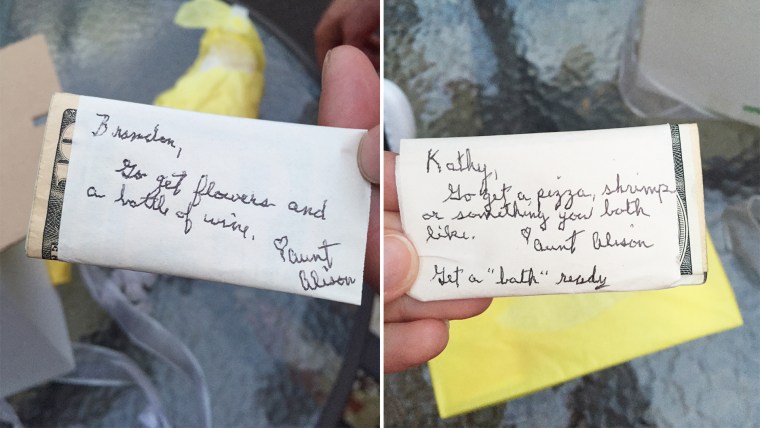 Brandon,
Go get flowers and
a bottle of wine.
♡ aunt
Alison
Kathy,
Go get a pizza, shrimp
or something you both
like. ♡ aunt Alison
Get a "bath" ready